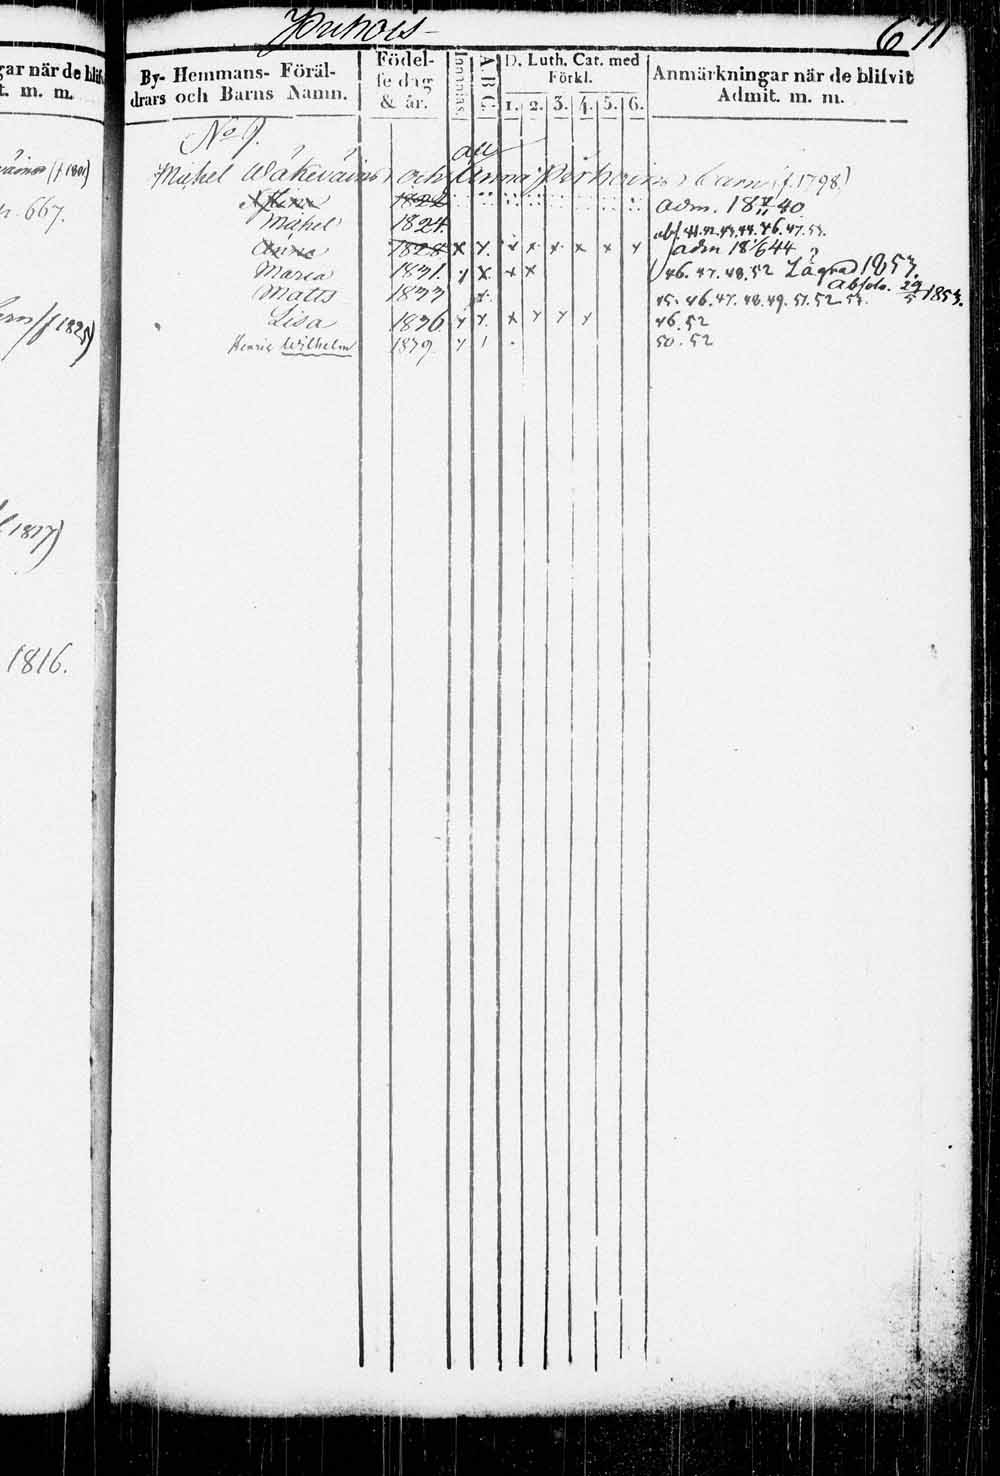 gar när de blif
t. m. m.
(f 1801)
667.
(f 1825)
1817)
1816.
Puhois
671
By- Hemmans- Föräl-
drars och Barns Namn.
Födel-
se dag
& år.
Innanläs.
A.B.C.
D. Luth. Cat. med
Förkl.
1. 2. 3. 4. 5. 6.
Anmärkningar när de blifvit
Admit. m. m.
No 9.
Michel Wäkeväinen och Anna barn (f. 1798)
1822 adm. 18 40
Michel 1824 abs. 41.42.43.44.46.47.53.
Anna 1828 x x. x x x x x x adm 18 44
Maria 1831. x x x x 46. 47. 48. 52 1853.
Matts 1833 x absolv. 29/5 1853.
45. 46. 47. 48. 49. 51. 52 53.
Lisa 1836 x x. x x x x 46. 52
Henric Wilhelm 1839 50. 52